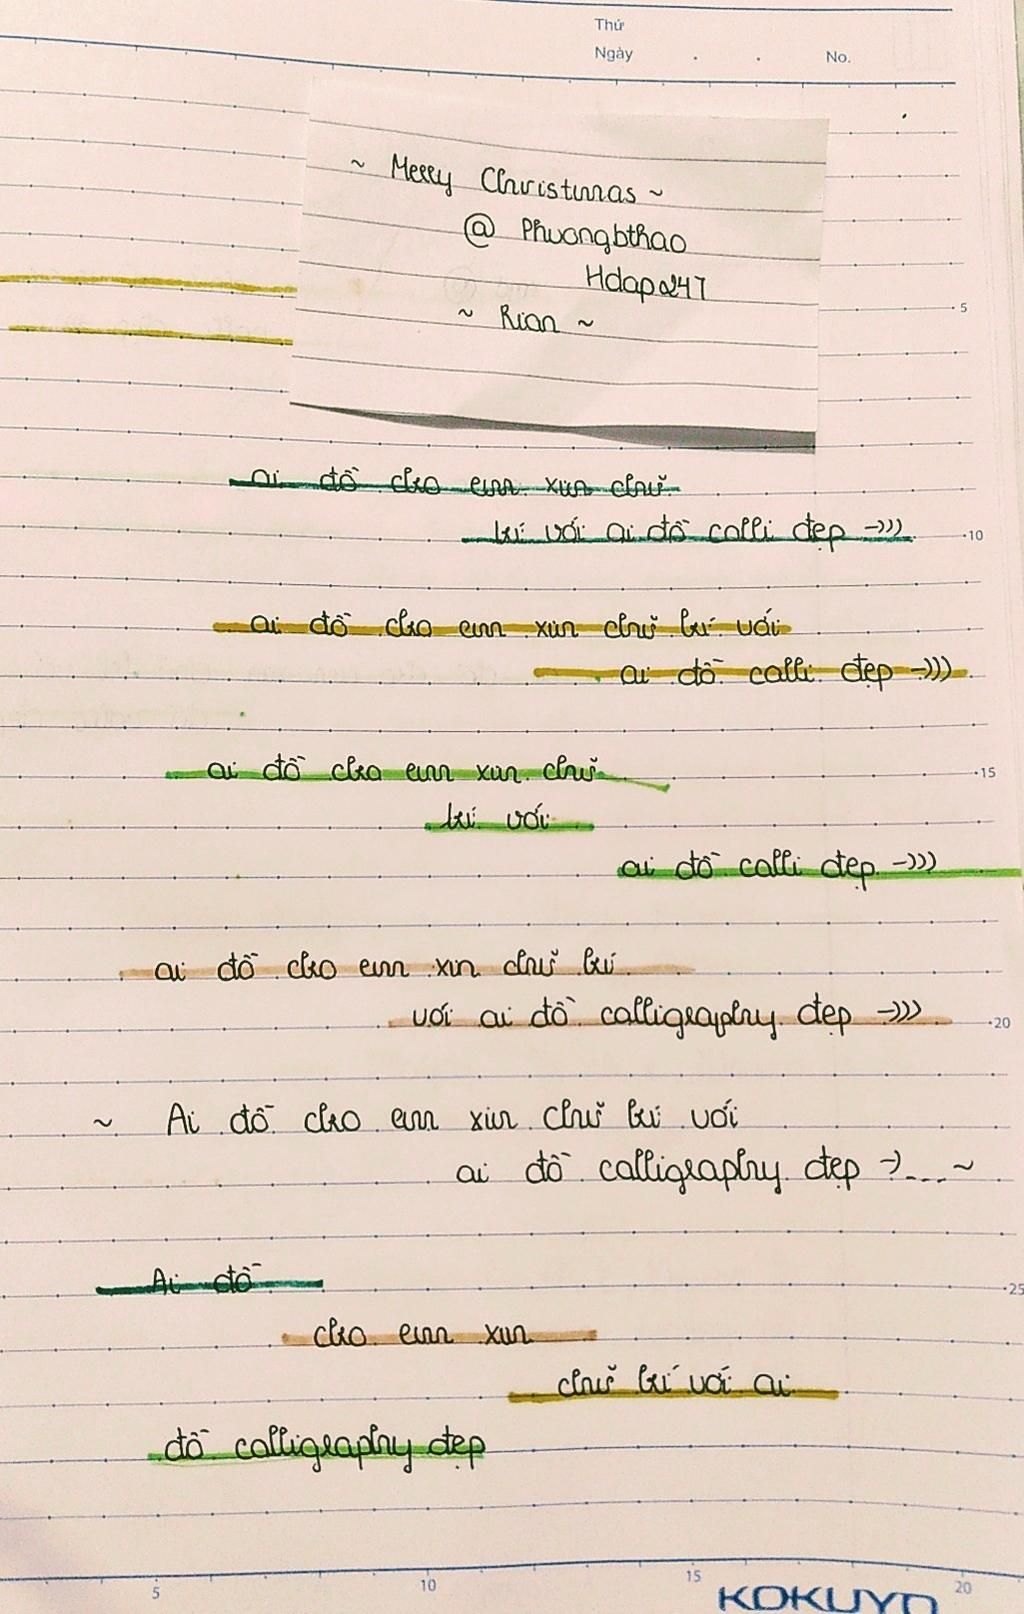 Thứ
Ngày . . No.
~ Merry Christmas ~
@ Phuongbthao
Hdap247
~ Rian ~
5
ai đồ cho em xin chữ
kí với ai đồ calli đẹp ->)))
10
ai đồ cho em xin chữ kí với
ai đồ calli đẹp ->)))
ai đồ cho em xin chữ
15
kí với
ai đồ calli đẹp ->)))
ai đồ cho em xin chữ kí
với ai đồ calligraphy đẹp ->)))
20
~ Ai đồ cho em xin chữ kí với
ai đồ calligraphy đẹp ->... ~
Ai đồ
25
cho em xin
chữ kí với ai
đồ calligraphy đẹp
5 10 15 20
KOKUYO